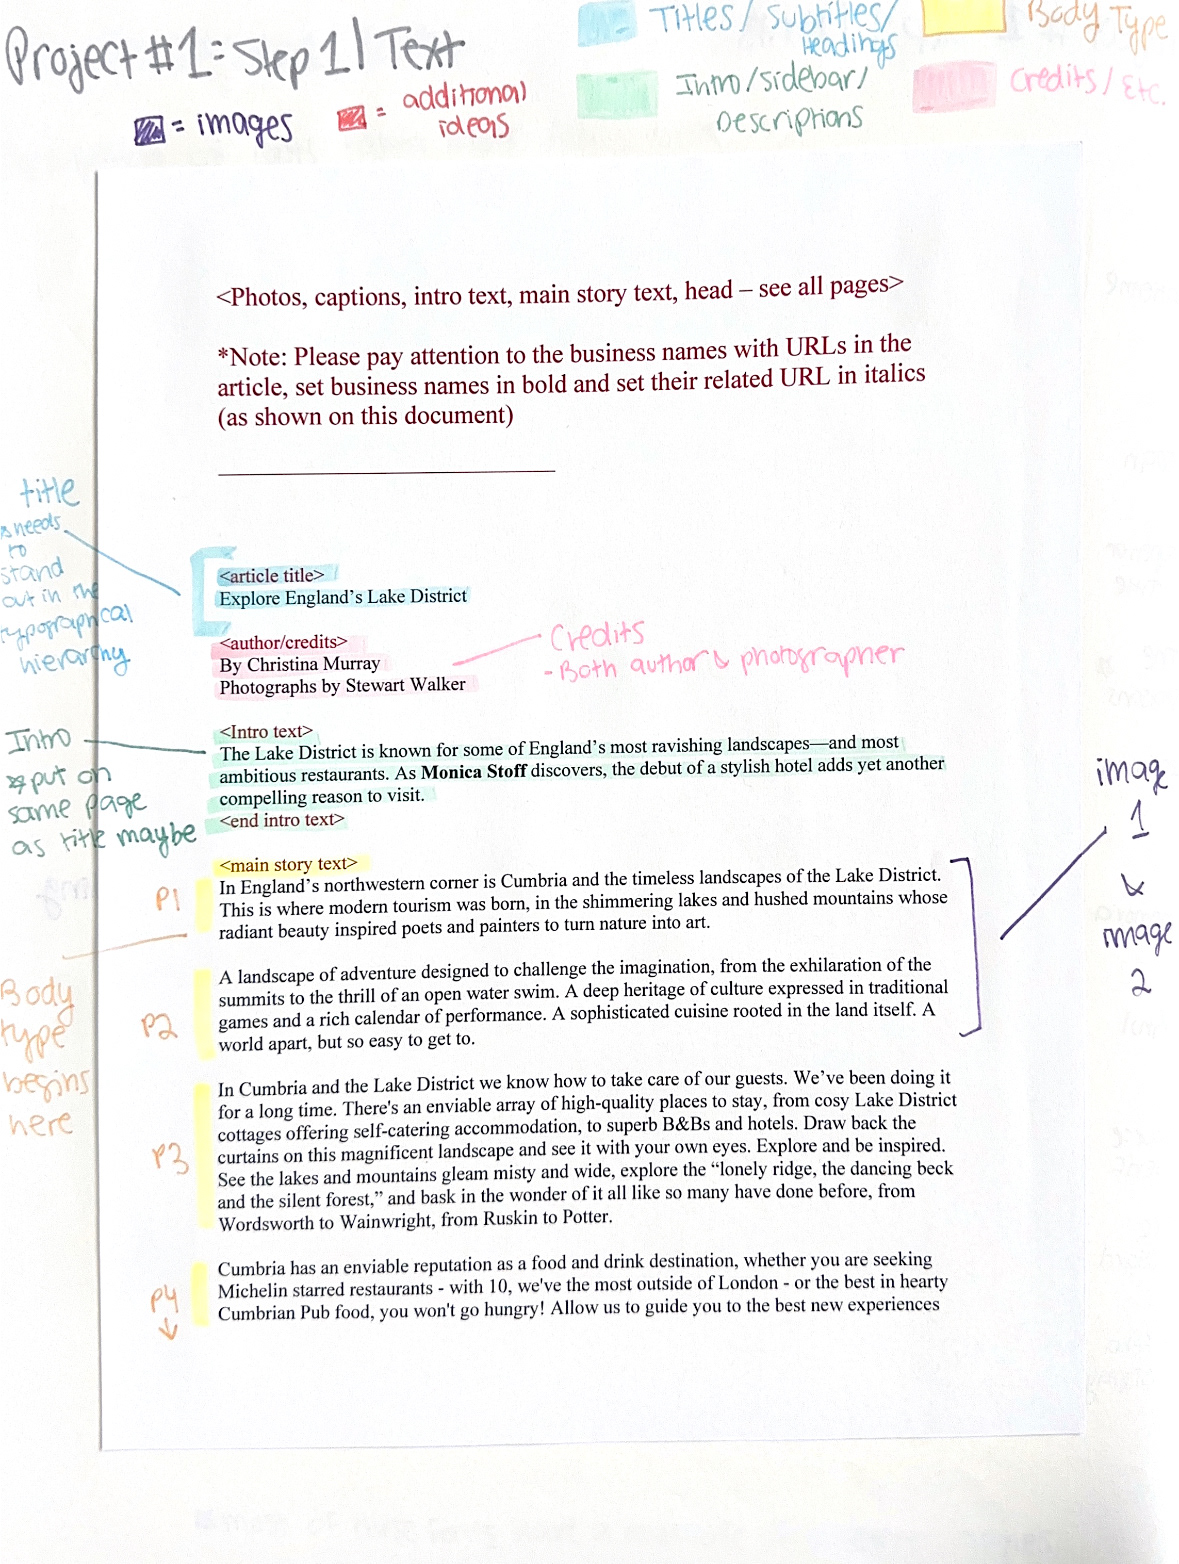 Project #1: Step 1 | Text
= images
= additional ideas
Titles / Subtitles / Headings
Body Type
Intro / Sidebar / Descriptions
Credits / Etc.
<Photos, captions, intro text, main story text, head – see all pages>
*Note: Please pay attention to the business names with URLs in the
article, set business names in bold and set their related URL in italics
(as shown on this document)
title
needs
to
stand
out in the
typographical
hierarchy
<article title>
Explore England's Lake District
<author/credits>
By Christina Murray
Photographs by Stewart Walker
Credits
- Both author & photographer
Intro
put on
same page
as title maybe
<Intro text>
The Lake District is known for some of England's most ravishing landscapes—and most
ambitious restaurants. As Monica Stoff discovers, the debut of a stylish hotel adds yet another
compelling reason to visit.
<end intro text>
image
1
&
image
2
<main story text>
P1
In England's northwestern corner is Cumbria and the timeless landscapes of the Lake District.
This is where modern tourism was born, in the shimmering lakes and hushed mountains whose
radiant beauty inspired poets and painters to turn nature into art.
Body
type
begins
here
P2
A landscape of adventure designed to challenge the imagination, from the exhilaration of the
summits to the thrill of an open water swim. A deep heritage of culture expressed in traditional
games and a rich calendar of performance. A sophisticated cuisine rooted in the land itself. A
world apart, but so easy to get to.
P3
In Cumbria and the Lake District we know how to take care of our guests. We've been doing it
for a long time. There's an enviable array of high-quality places to stay, from cosy Lake District
cottages offering self-catering accommodation, to superb B&Bs and hotels. Draw back the
curtains on this magnificent landscape and see it with your own eyes. Explore and be inspired.
See the lakes and mountains gleam misty and wide, explore the "lonely ridge, the dancing beck
and the silent forest," and bask in the wonder of it all like so many have done before, from
Wordsworth to Wainwright, from Ruskin to Potter.
P4
Cumbria has an enviable reputation as a food and drink destination, whether you are seeking
Michelin starred restaurants - with 10, we've the most outside of London - or the best in hearty
Cumbrian Pub food, you won't go hungry! Allow us to guide you to the best new experiences